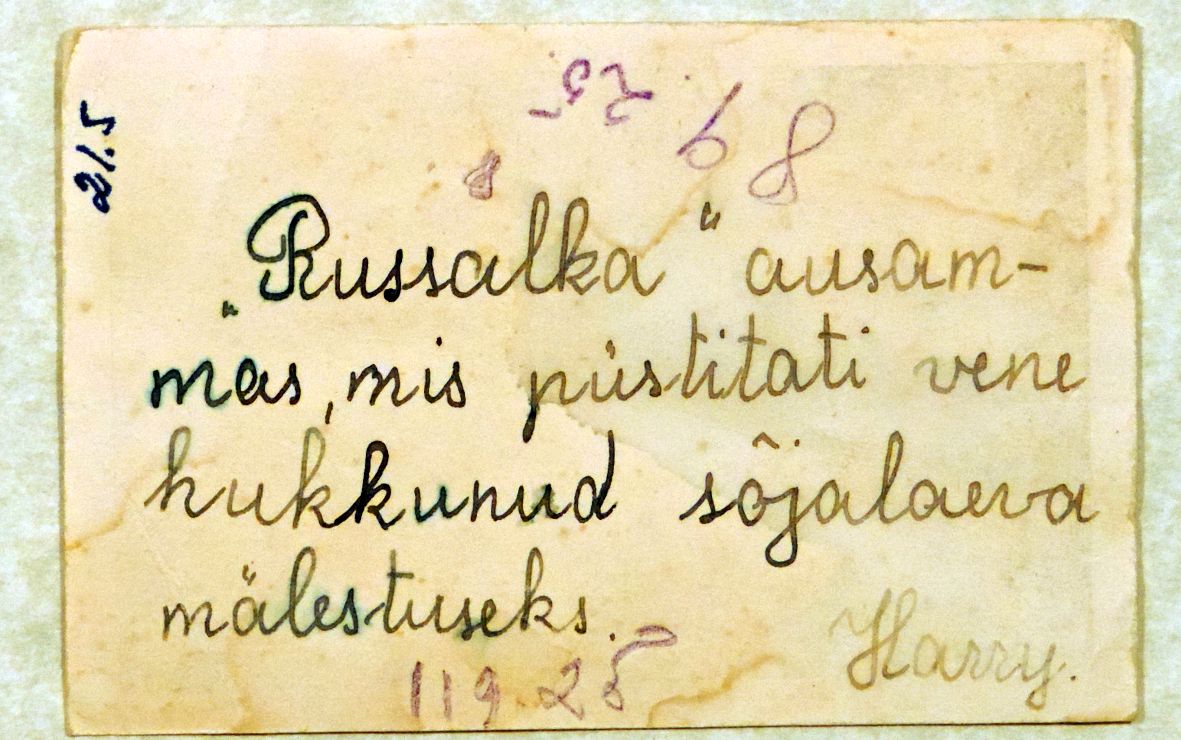 21.5
„Russalka“ ausam-
mas, mis püstitati vene
hukkunud sõjalaeva
mälestuseks.
Harry.
119 25